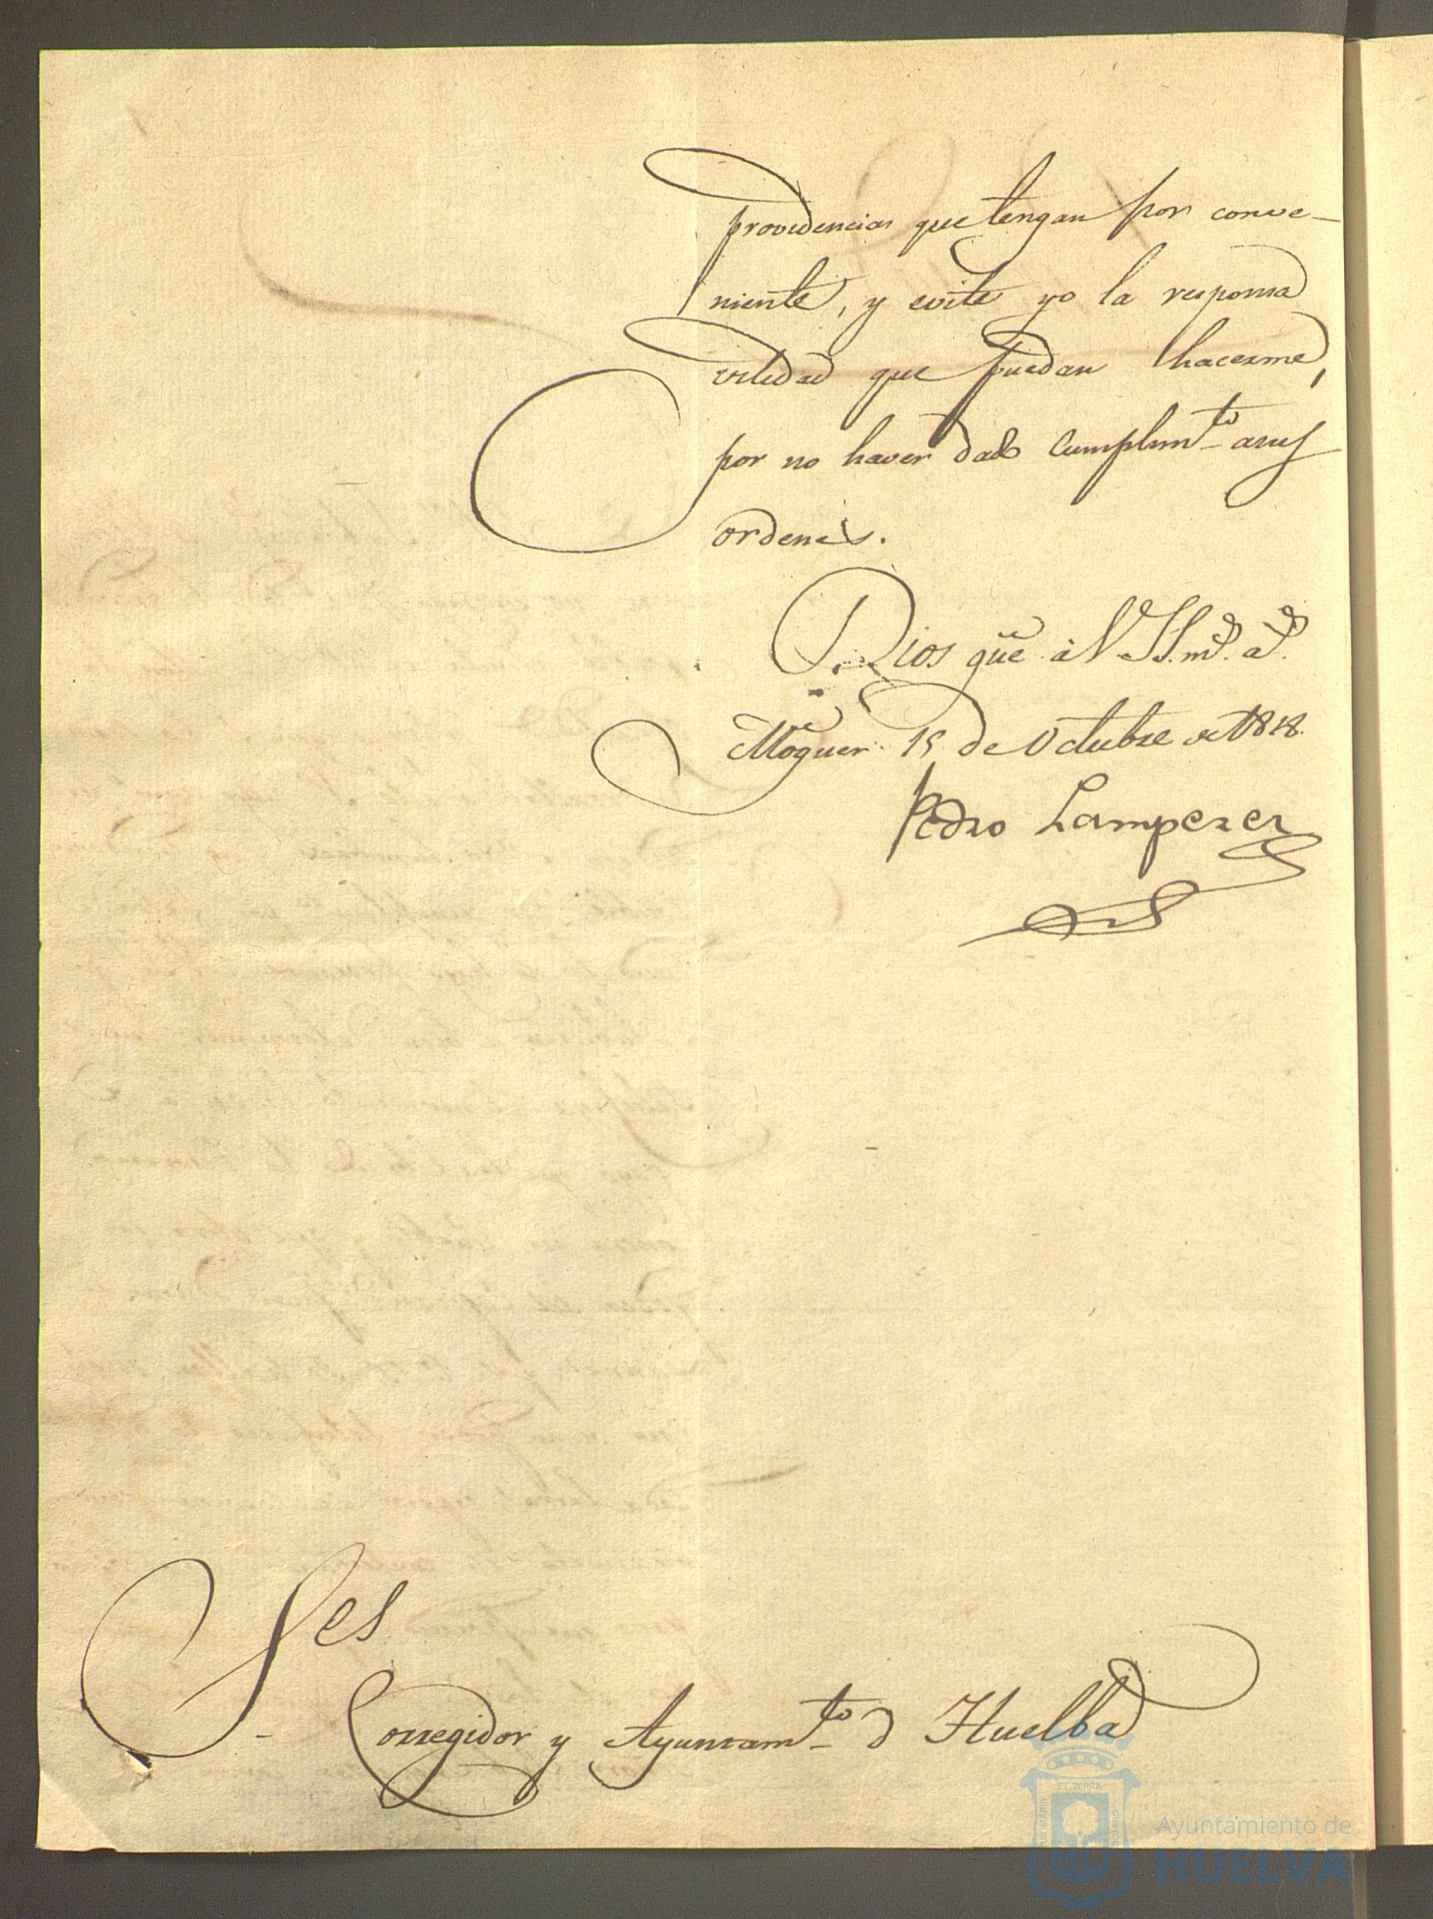 providencias que tengan por conve-
niente, y evite yo la responsa
vilidad que puedan hacerme,
por no haver dado Cumplim.to asus
ordenes.
Dios gue. à V SS. ms. as.
Moguer 15 de Octubre de 1818.
Pedro Lamperez
Ses
Corregidor y Ayuntam.to d Huelba
Ayuntamiento de
HUELVA